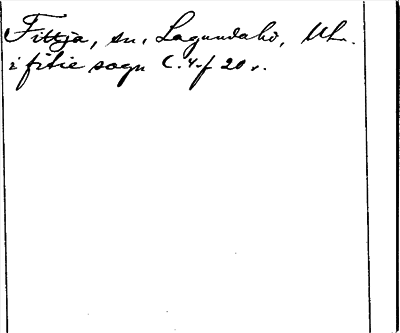 Fittja, sn, Lagundahd, Upl.
i fitie sogn C. 4. f 20 v.